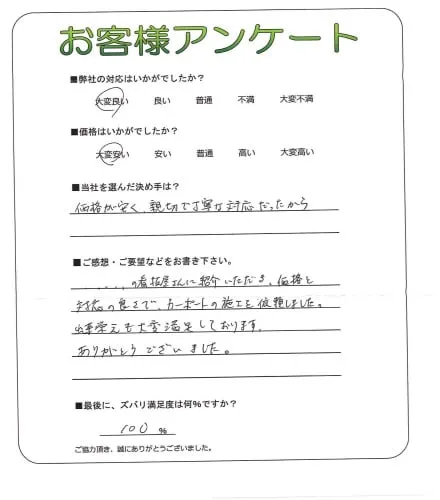 お客様アンケート
■弊社の対応はいかがでしたか?
大変良い 良い 普通 不満 大変不満
■価格はいかがでしたか?
大変安い 安い 普通 高い 大変高い
■当社を選んだ決め手は?
価格が安く、親切で丁寧な対応だったから
■ご感想・ご要望などをお書き下さい。
の看板屋さんに紹介いただき、価格と
対応の良さで、カーポートの施工を依頼しました。
出来栄えも大変満足しております。
ありがとうございました。
■最後に、ズバリ満足度は何%ですか?
100 %
ご協力頂き、誠にありがとうございました。